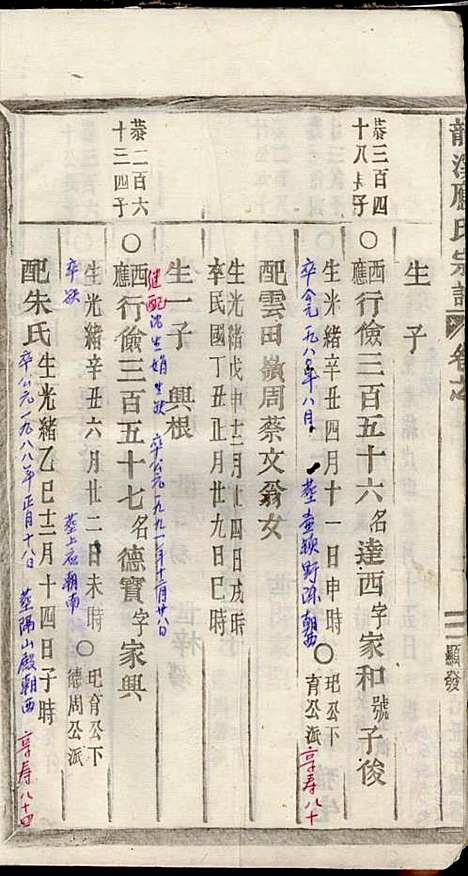 應氏宗譜 卷之
顯發
生 子
恭三百四十八 子
○ 應西行儉三百五十六名達西字家和號子俊
生光緒辛丑四月十一日申時 ○ 玘公下育公派
卒公元一九八〇年八月 朝西 享寿八十
配雲田嶺周蔡文翁女
生光緒戊申十二月廿四日戌時
卒民國丁丑正月廿九日巳時
生一子 興根
继配沈生娟生殁 卒公元一九九一年十二月廿八日
恭二百六十三四子
○ 應西行儉三百五十七名德寶字家興
生光緒辛丑六月廿二日未時 ○ 玘育公下德周公派
卒欤 墓上应朝南
配朱氏生光緒乙巳十二月十四日子時
卒公元一九八八年正月十八日 墓陽山殿朝西 享寿八十四